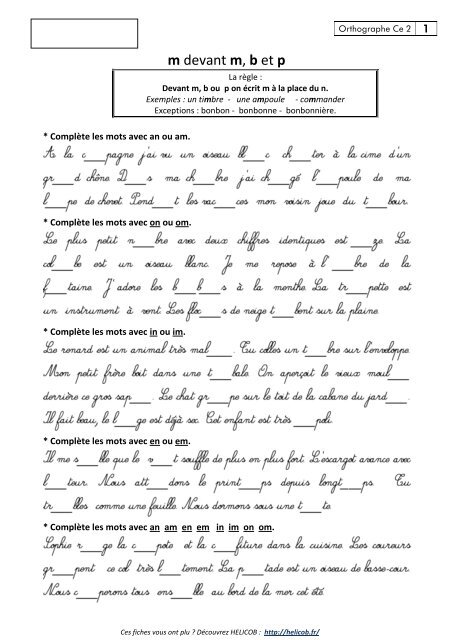 Orthographe Ce 2 1
m devant m, b et p
La règle :
Devant m, b ou p on écrit m à la place du n.
Exemples : un timbre - une ampoule - commander
Exceptions : bonbon - bonbonne - bonbonnière.
* Complète les mots avec an ou am.
A la c___pagne j'ai vu un oiseau bl___c ch___ter à la cime d'un
gr___d chêne. D___s ma ch___bre j'ai ch___gé l'___poule de ma
l___pe de chevet. Pend___t les vac___ces mon voisin joue du t___bour.
* Complète les mots avec on ou om.
Le plus petit n___bre avec deux chiffres identiques est ___ze. La
col___be est un oiseau blanc. Je me repose à l'___bre de la
f___taine. J'adore les b___b___s à la menthe. La tr___pette est
un instrument à vent. Les flo___s de neige t___bent sur la plaine.
* Complète les mots avec in ou im.
Le renard est un animal très mal___. Tu colles un t___bre sur l'enveloppe.
Mon petit frère boit dans une t___bale. On aperçoit le vieux moul___
derrière ce gros sap___. Le chat gr___pe sur le toit de la cabane du jard___.
Il fait beau, le l___ge est déjà sec. Cet enfant est très ___poli.
* Complète les mots avec en ou em.
Il me s___ble que le v___t souffle de plus en plus fort. L'escargot avance avec
l___teur. Nous att___dons le print___ps depuis longt___ps. Tu
tr___bles comme une feuille. Nous dormons sous une t___te.
* Complète les mots avec an am en em in im on om.
Sophie r___ge la c___pote et la c___fiture dans la cuisine. Les coureurs
gr___pent ce col très l___tement. La p___tade est un oiseau de basse-cour.
Nous c___perons tous ens___ble au bord de la mer cet été.
Ces fiches vous ont plu ? Découvrez HELICOB : http://helicob.fr/